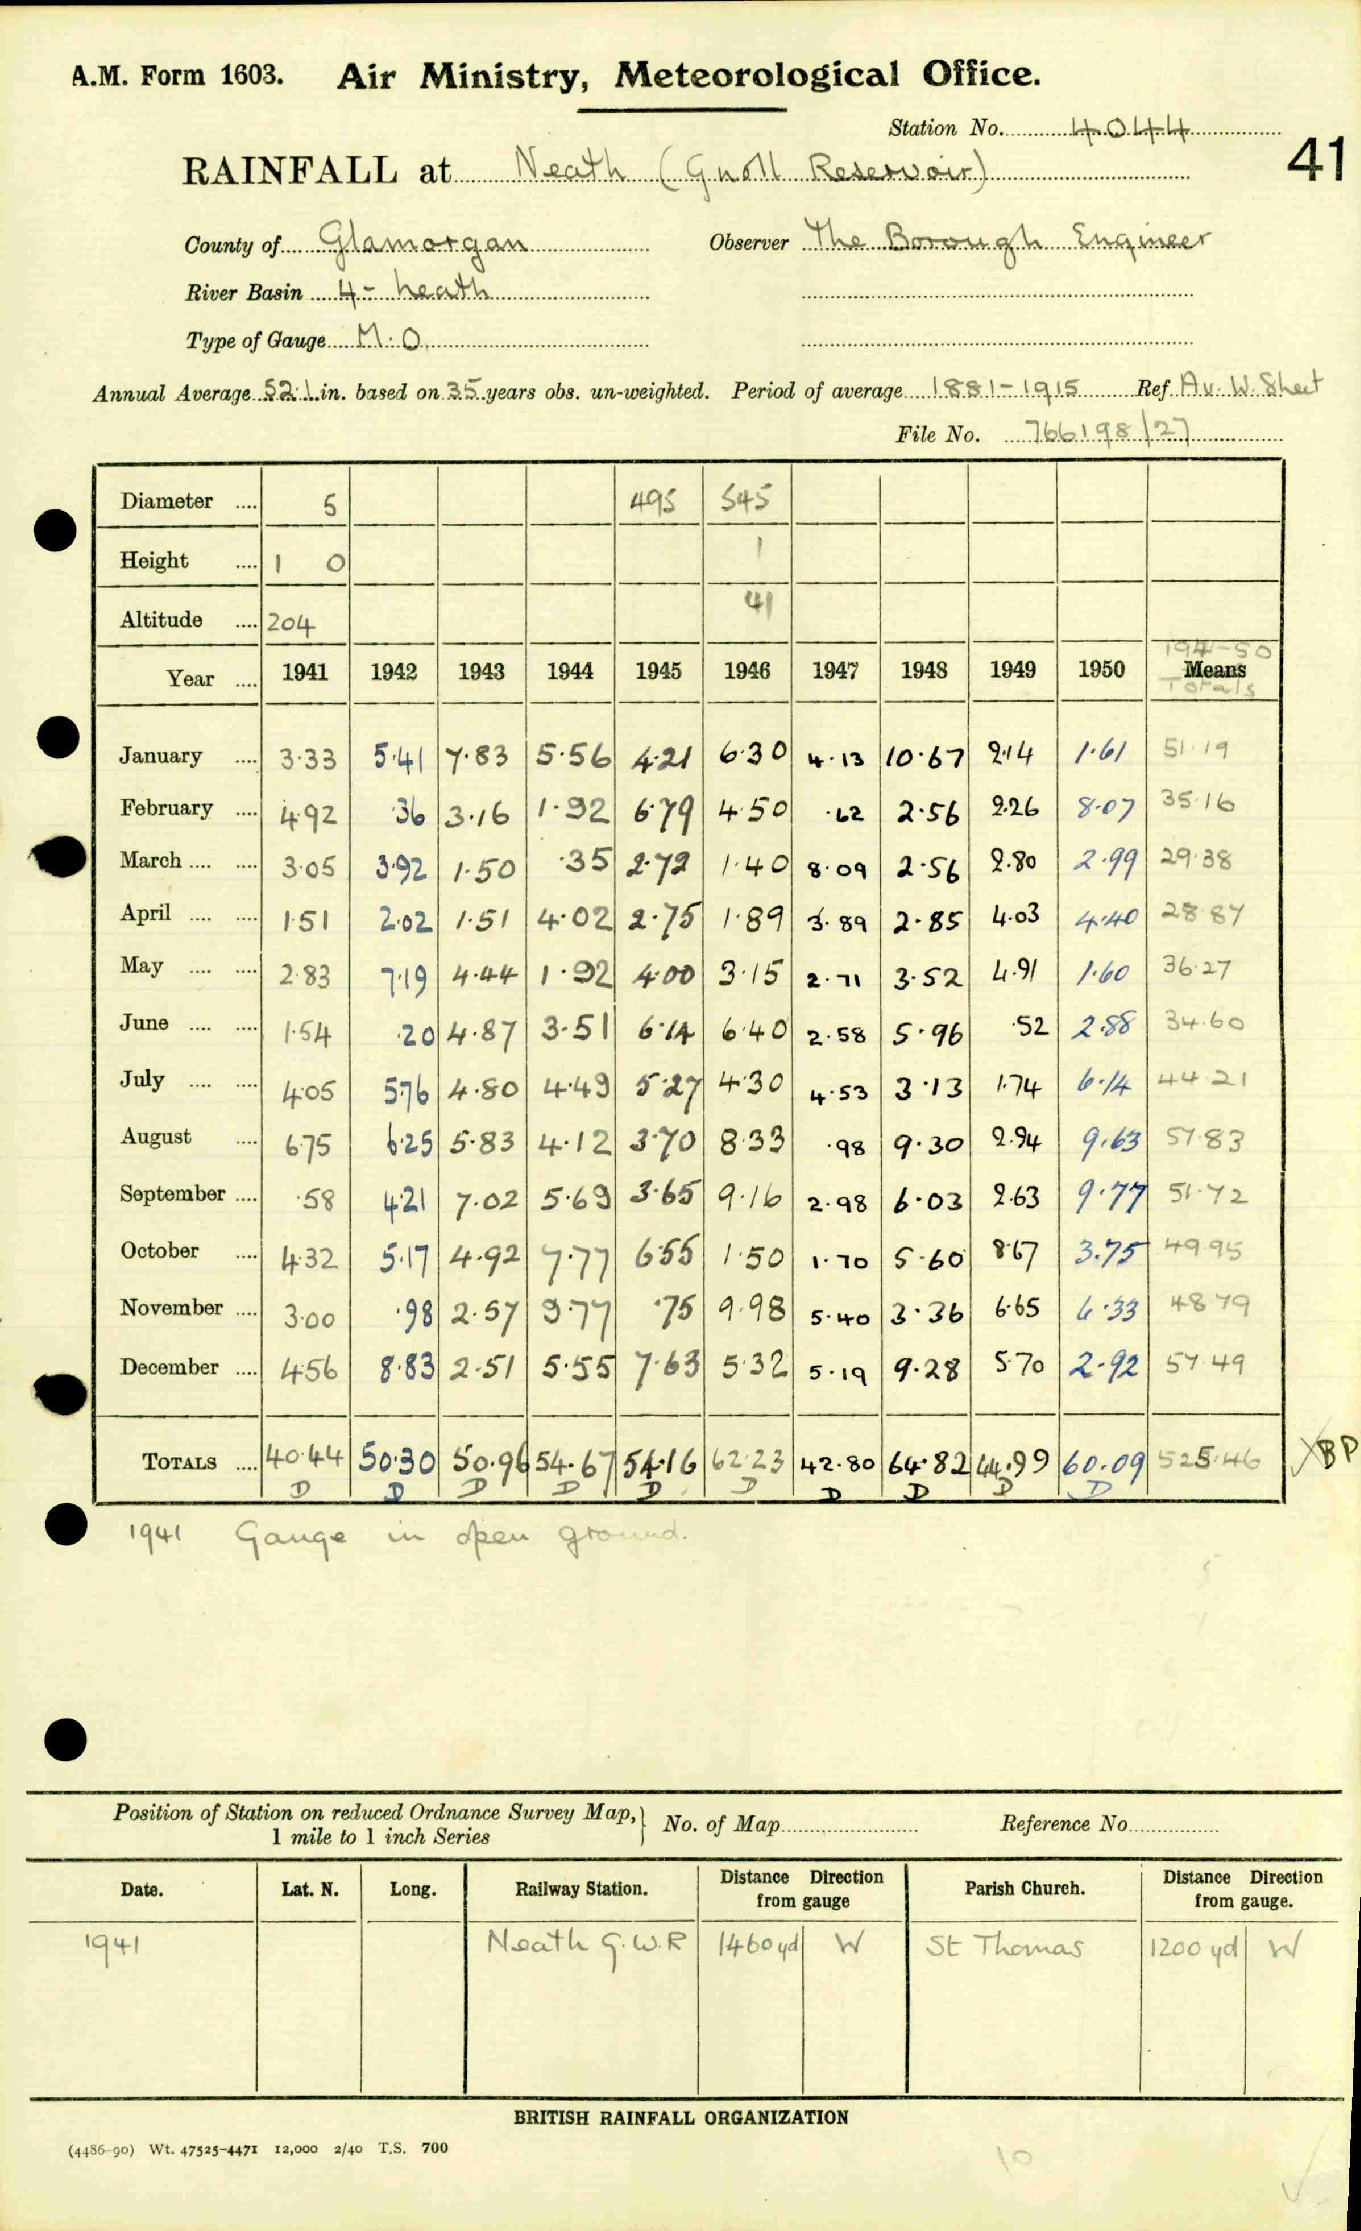 A.M. Form 1603. Air Ministry, Meteorological Office.
Station No. 4044
41
RAINFALL at Neath (Gnoll Reservoir)
County of Glamorgan Observer The Borough Engineer
River Basin 4 - Neath
Type of Gauge M.O.
Annual Average 52.1 in. based on 35 years obs. un-weighted. Period of average 1881-1915 Ref. Av. W. Sheet
File No. 766198/27
Diameter .... 5 495 545
Height .... 1 0 1
Altitude .... 204 41
1941-50
Year .... 1941 1942 1943 1944 1945 1946 1947 1948 1949 1950 Means
Totals
January .... 3.33 5.41 7.83 5.56 4.21 6.30 4.13 10.67 2.14 1.61 51.19
February .... 4.92 .36 3.16 1.92 6.79 4.50 .62 2.56 2.26 8.07 35.16
March .... .... 3.05 3.92 1.50 .35 2.72 1.40 8.09 2.56 2.80 2.99 29.38
April .... .... 1.51 2.02 1.51 4.02 2.75 1.89 3.89 2.85 4.03 4.40 28.87
May .... .... 2.83 7.19 4.44 1.92 4.00 3.15 2.71 3.52 4.91 1.60 36.27
June .... .... 1.54 .20 4.87 3.51 6.14 6.40 2.58 5.96 .52 2.88 34.60
July .... .... 4.05 5.76 4.80 4.49 5.27 4.30 4.53 3.13 1.74 6.14 44.21
August .... 6.75 6.25 5.83 4.12 3.70 8.33 .98 9.30 2.94 9.63 57.83
September .... .58 4.21 7.02 5.69 3.65 9.16 2.98 6.03 2.63 9.77 51.72
October .... 4.32 5.17 4.92 7.77 6.55 1.50 1.70 5.60 8.67 3.75 49.95
November .... 3.00 .98 2.57 9.77 .75 9.98 5.40 3.36 6.65 6.33 48.79
December .... 4.56 8.83 2.51 5.55 7.63 5.32 5.19 9.28 5.70 2.92 57.49
TOTALS .... 40.44 50.30 50.96 54.67 54.16 62.23 42.80 64.82 44.99 60.09 525.46 BP
D D D D D D D D D D
1941 Gauge in open ground.
Position of Station on reduced Ordnance Survey Map, } No. of Map Reference No.
1 mile to 1 inch Series
Date. Lat. N. Long. Railway Station. Distance Direction from gauge Parish Church. Distance Direction from gauge.
1941 Neath G.W.R 1460 yd W St Thomas 1200 yd W
BRITISH RAINFALL ORGANIZATION
(4486-90) Wt. 47525-4471 12,000 2/40 T.S. 700
10